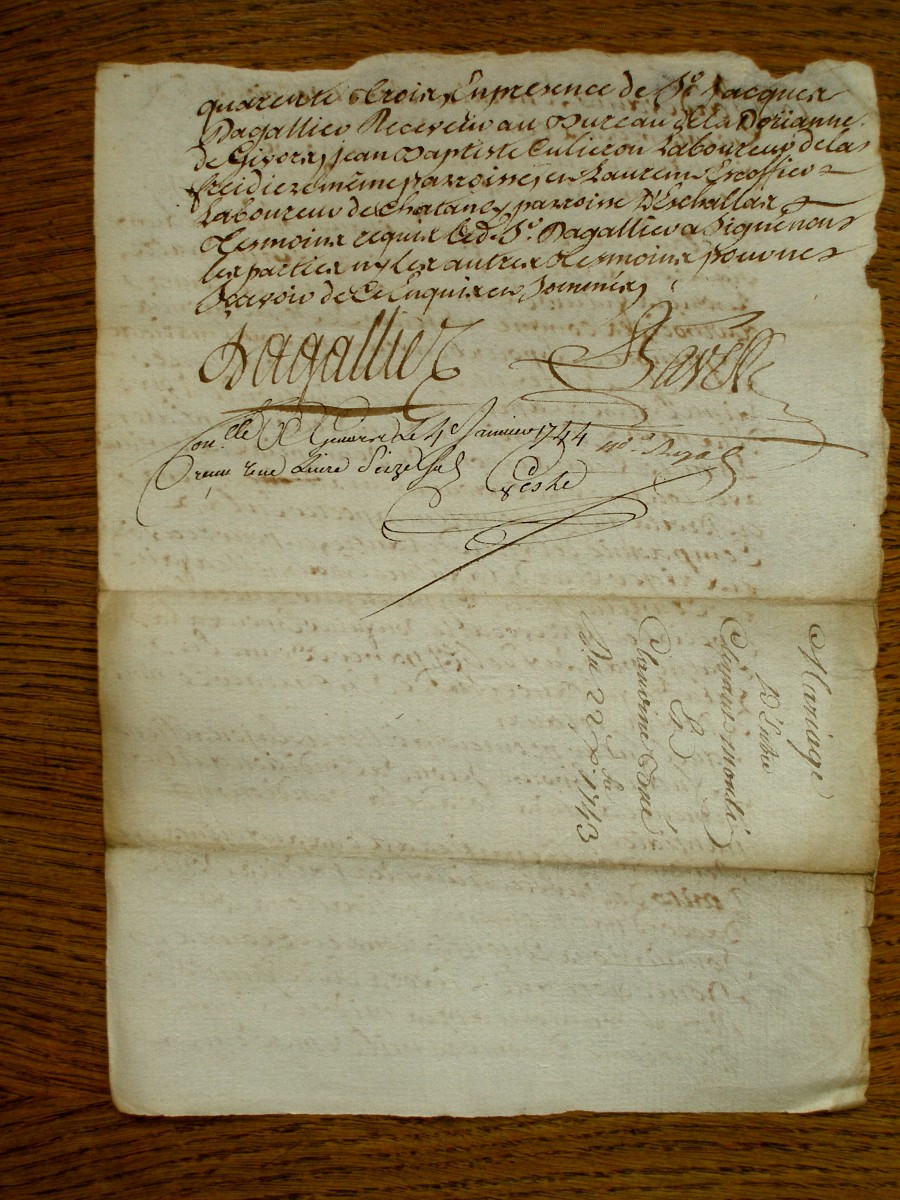 quarente trois, En presence de Sr. Jacques
Dagallier Receveur au Bureau de la Doüanne
de Givors, jean Baptiste Culieron Laboureur de la
freidiere même parroisse, en Laurent Escoffier
Laboureur de Chatanex, parroisse D'Eschallas
tesmoins requis led. Sr. Dagallier a signé non
les parties ny les autres tesmoins pour ne
scavoir de Ce Enquis en sommés,
Dagallier
no.re Royal
Con.llé a Givors Le 4e Janvier 1744
reçu une Livre seize sols
Mariage
D'Entre
Et
Du 22 x.bre 1743